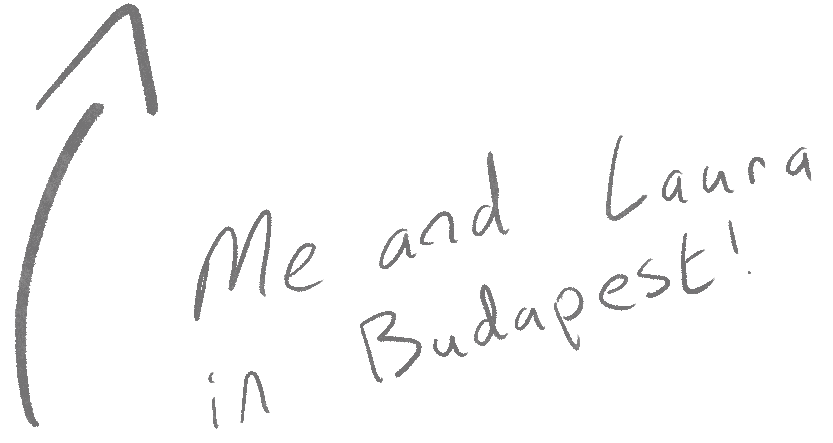 Me and Laura
in Budapest!